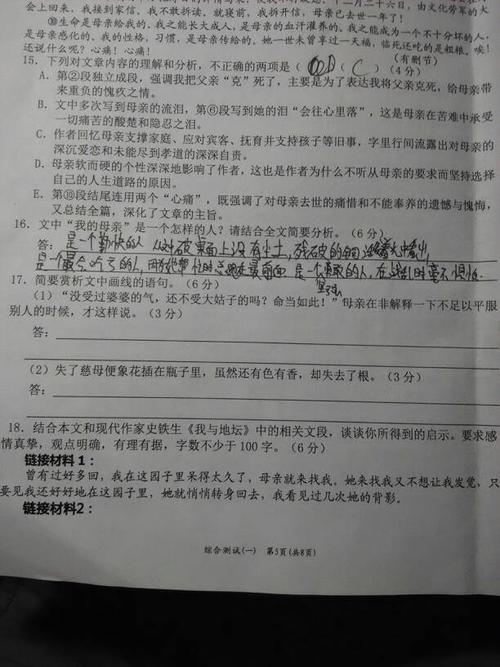 会上回来，我接到家信，我不敢拆读，就寝前，我拆开信，母亲已去世一年了！
⑩生命是母亲给我的。我之能长大成人，是母亲的血汗灌养的。我之能成为一个不十分坏的人，
是母亲感化的。我的性格，习惯，是母亲传给的。她一世未曾享过一天福，临死还吃的是粗粮。唉！
还说什么呢？心痛！心痛！（有删节）
15．下列对文章内容的理解和分析，不正确的两项是（ ）（ C ）（4分）
A．第②段独立成段，强调我把父亲“克”死了，主要是为了表达我将父亲克死，给母亲带
来重负的愧疚之情。
B．文中多次写到母亲的流泪，第⑥段写到她的泪“会往心里落”，这是母亲在苦难中承受
一切痛苦的酸楚和隐忍之泪。
C．作者回忆母亲支撑家庭、应对宾客、抚育并支持孩子等旧事，字里行间流露出对母亲的
深沉爱恋和未能尽到孝道的深深自责。
D．母亲软而硬的个性深深地影响了作者，这也是作者为什么不听从母亲的要求而坚持选择
自己的人生道路的原因。
E．第⑩段结尾连用两个“心痛”，既强调了对母亲去世的痛惜和不能奉养的遗憾与愧悔，
又总结全篇，深化了文章的主旨。
16．文中“我的母亲”是一个怎样的人？请结合全文简要分析。（6分）
答：是一个勤快的人 桌面上没有尘土，残破的铜
是一个最 吃亏的人， 是一个 的人，在 时毫不惧怕.
坚强
17．简要赏析文中画线的语句。（6分）
（1）“没受过婆婆的气，还不受大姑子的吗？命当如此！”母亲在非解释一下不足以平服
别人的时候，才这样说。（3分）
答：
（2）失了慈母便象花插在瓶子里，虽然还有色有香，却失去了根。（3分）
答：
18．结合本文和现代作家史铁生《我与地坛》中的相关文段，谈谈你所得到的启示。要求感
情真挚，观点明确，有理有据，字数不少于100字。（6分）
链接材料1：
曾有过好多回，我在这园子里呆得太久了，母亲就来找我。她来找我又不想让我发觉，只
要见我还好好地在这园子里，她就悄悄转身回去，我看见过几次她的背影。
链接材料2：
综合测试(一) 第5页(共8页)